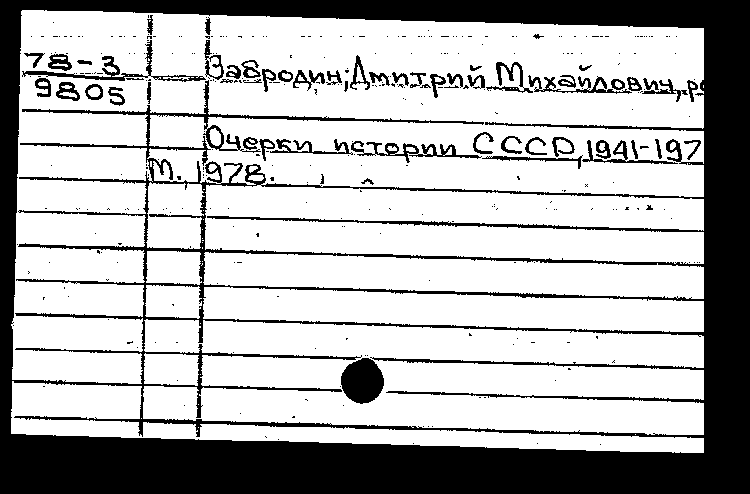 78-3
9805
Забродин, Дмитрий Михайлович, ре
Очерки истории СССР, 1941-197
М., 1978.